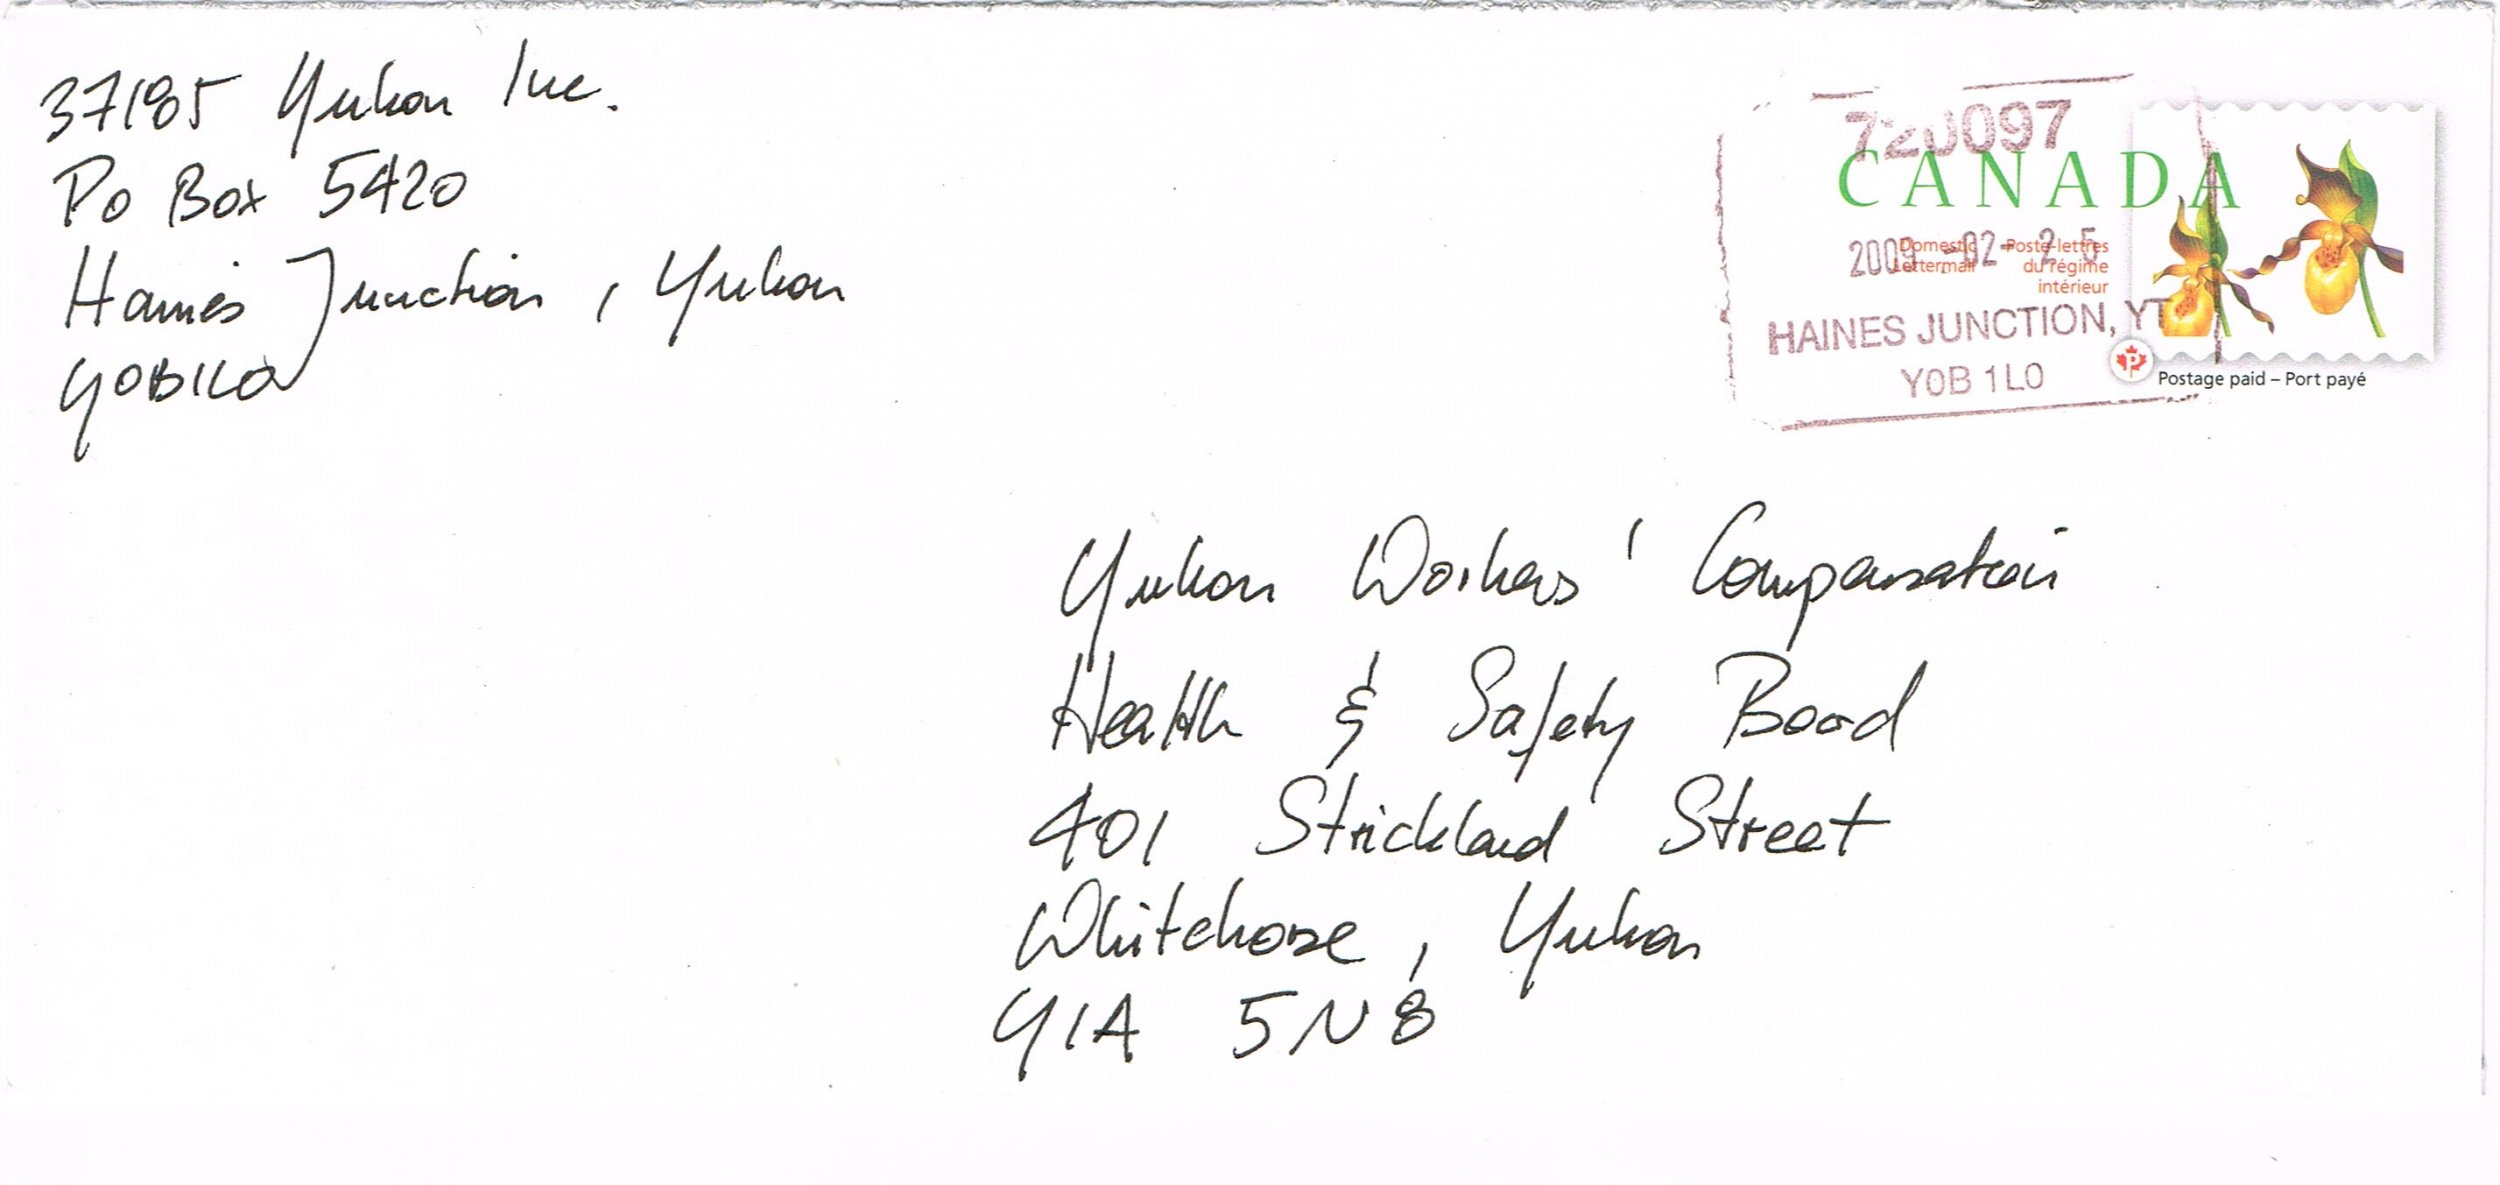 37185 Yukon Inc.
Po Box 5420
Haines Junction, Yukon
Y0B1L0
720097
CANADA
Domestic Lettermail
Poste-lettres du régime intérieur
2009-02-25
HAINES JUNCTION, YT
Y0B 1L0
P
Postage paid – Port payé
Yukon Workers' Compensation
Health & Safety Board
401 Strickland Street
Whitehorse, Yukon
Y1A 5N8